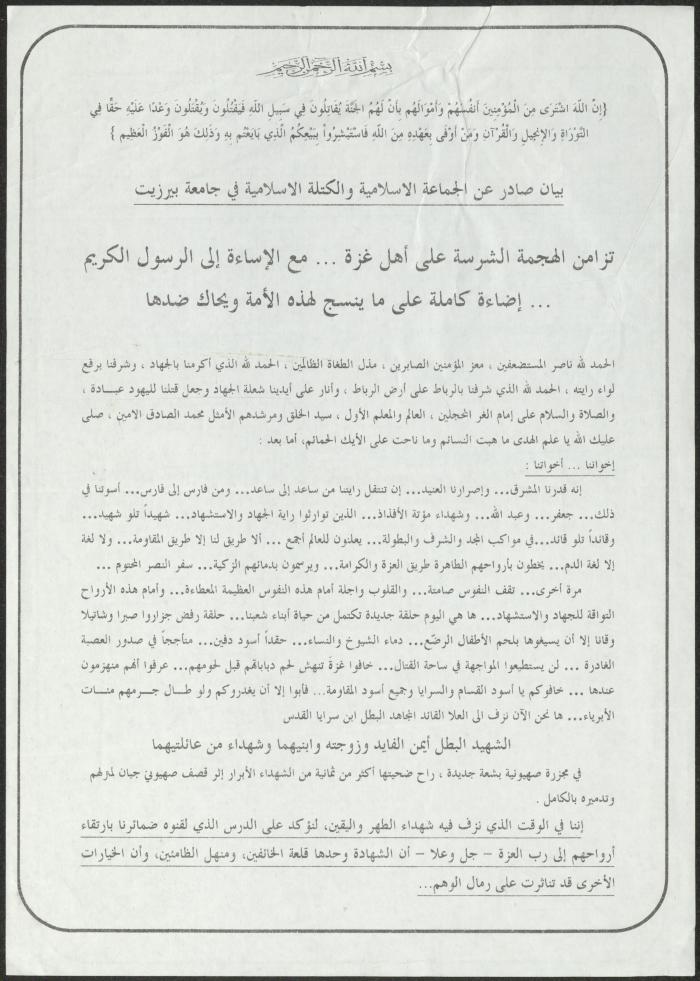 بسم الله الرحمن الرحيم
{إِنَّ اللّهَ اشْتَرَى مِنَ الْمُؤْمِنِينَ أَنفُسَهُمْ وَأَمْوَالَهُم بِأَنَّ لَهُمُ الجَنَّةَ يُقَاتِلُونَ فِي سَبِيلِ اللّهِ فَيَقْتُلُونَ وَيُقْتَلُونَ وَعْدًا عَلَيْهِ حَقًّا فِي
التَّوْرَاةِ وَالإِنجِيلِ وَالْقُرْآنِ وَمَنْ أَوْفَى بِعَهْدِهِ مِنَ اللّهِ فَاسْتَبْشِرُواْ بِبَيْعِكُمُ الَّذِي بَايَعْتُم بِهِ وَذَلِكَ هُوَ الْفَوْزُ الْعَظِيم }
بيان صادر عن الجماعة الاسلامية والكتلة الاسلامية في جامعة بيرزيت
تزامن الهجمة الشرسة على أهل غزة ... مع الإساءة إلى الرسول الكريم
... إضاءة كاملة على ما ينسج لهذه الأمة ويحاك ضدها
الحمد لله ناصر المستضعفين ، معز المؤمنين الصابرين ، مذل الطغاة الظالمين ، الحمد لله الذي أكرمنا بالجهاد ، وشرفنا برفع
لواء رايته ، الحمد لله الذي شرفنا بالرباط على أرض الرباط ، وأنار على أيدينا شعلة الجهاد وجعل قتلنا لليهود عبـــادة ،
والصلاة والسلام على إمام الغر المحجلين ، العالم والمعلم الأول ، سيد الخلق ومرشدهم الأمثل محمد الصادق الامين ، صلى
عليك الله يا علم الهدى ما هبت النسائم وما ناحت على الأيك الحمائم، أما بعد :
إخواننا ... أخواتنا :
إنه قدرنا المشرق... وإصرارنا العنيد... إن تنتقل رايتنا من ساعد إلى ساعد... ومن فارس إلى فارس... أسوتنا في
ذلك... جعفر... وعبد الله... وشهداء مؤتة الأفذاذ... الذين توارثوا راية الجهاد والاستشهاد... شهيداً تلو شهيد...
وقائداً تلو قائد...في مواكب المجد والشرف والبطولة... يعلنون للعالم أجمع ... ألا طريق لنا إلا طريق المقاومة... ولا لغة
إلا لغة الدم... يخطون بأرواحهم الطاهرة طريق العزة والكرامة... ويرسمون بدمائهم الزكية... سفر النصر المحتوم ...
مرة أخرى... تقف النفوس صامتة... والقلوب واجلة أمام هذه النفوس العظيمة المعطاءة... وأمام هذه الأرواح
التواقة للجهاد والاستشهاد... ها هي اليوم حلقة جديدة تكتمل من حياة أبناء شعبنا... حلقة رفض جزاروا صبرا وشاتيلا
وقانا إلا أن يسيغوها بلحم الأطفال الرضّع... دماء الشيوخ والنساء... حقداً أسود دفين... متأججاً في صدور العصبة
الغادرة ... لن يستطيعوا المواجهة في ساحة القتال... خافوا غزة تنهش لحم دباباتهم قبل لحومهم... عرفوا أنهم منهزمون
عندها ... خافوكم يا أسود القسام والسرايا وجميع أسود المقاومة... فأبوا إلا أن يغدروكم ولو طــال جــرمهم مئــات
الأبرياء... ها نحن الآن نزف الى العلا القائد المجاهد البطل ابن سرايا القدس
الشهيد البطل أيمن الفايد وزوجته وابنيهما وشهداء من عائلتيهما
في مجزرة صهيونية بشعة جديدة ، راح ضحيتها أكثر من ثمانية من الشهداء الأبرار إثر قصف صهيوني جبان لمنزلهم
وتدميره بالكامل .
إننا في الوقت الذي نزف فيه شهداء الطهر واليقين، لنؤكد على الدرس الذي لقنوه ضمائرنا بارتقاء
أرواحهم إلى رب العزة – جل وعلا – أن الشهادة وحدها قلعة الخائفين، ومنهل الظامئين، وأن الخيارات
الأخرى قد تناثرت على رمال الوهم...